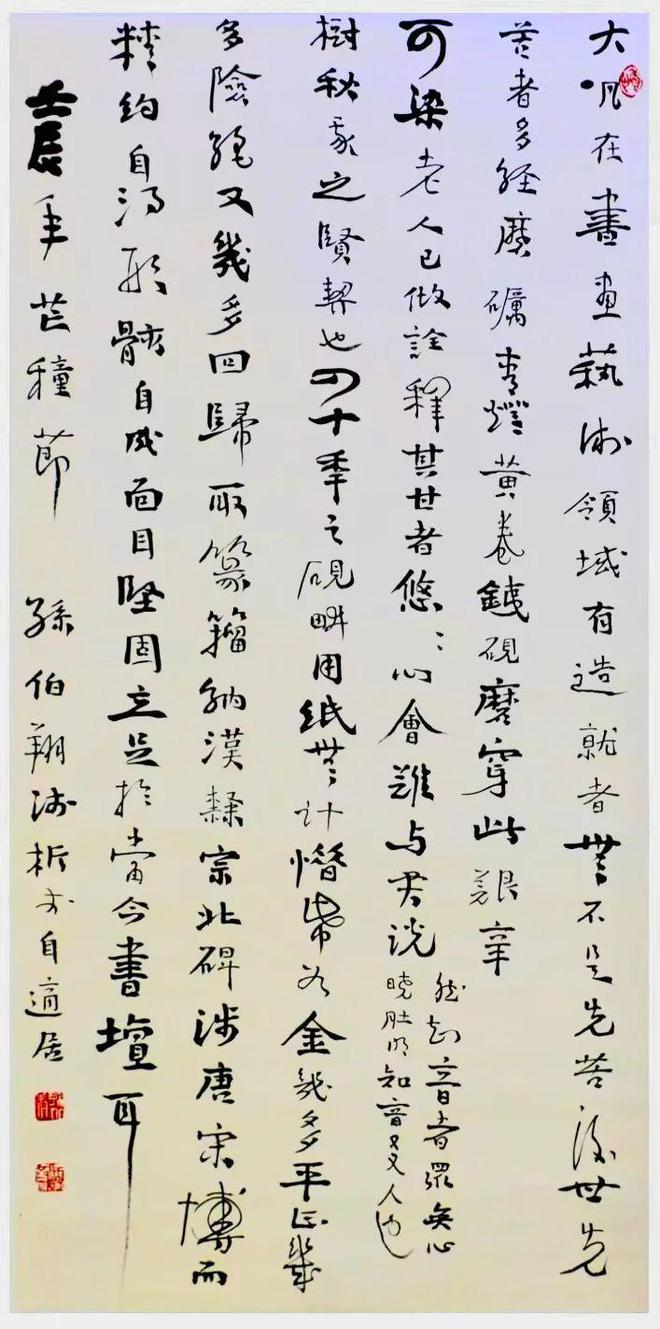 大凡在書畫藝術領域有造就者無不是先苦後世先
苦者多經磨礪青燈黃卷鐵硯磨穿此艱辛
可染老人已做詮釋其甘者悠悠心會難与君说
然知音者眾矣心
曉肚明知音又又人也
樹秋我之賢契也四十年之硯畊用紙無計惜紫為金幾多平正幾
多險絕又幾多回歸取篆籀納漢隸宗北碑涉唐宋博而
精約自得形骸自成面目堅固立足於當今書壇耳
壬辰年芒種節 孫伯翔於析木自適居